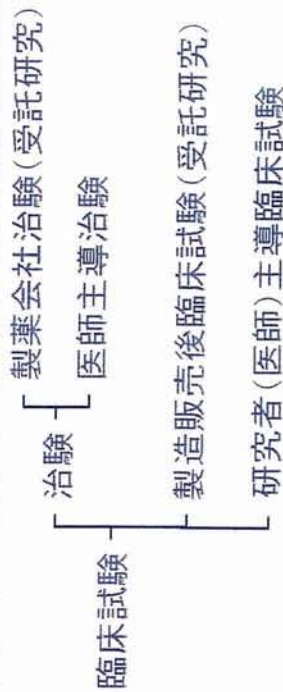 臨床試験
治験
製薬会社治験(受託研究)
医師主導治験
製造販売後臨床試験(受託研究)
研究者(医師)主導臨床試験